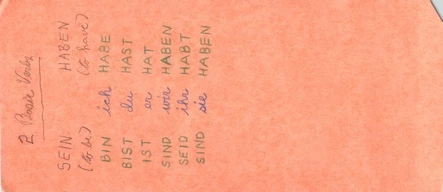 2 Basic Verbs
SEIN HABEN
(to be) (to have)
BIN ich HABE
BIST du HAST
IST er HAT
SIND wir HABEN
SEID ihr HABT
SIND sie HABEN